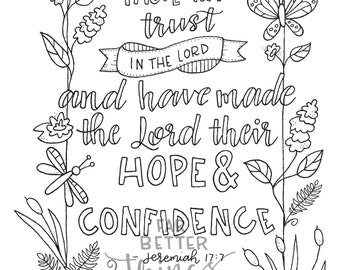 trust
IN THE LORD
and have made
the Lord their
HOPE &
CONFIDENCE
FAD
BETTER
Jeremiah 17:7
things